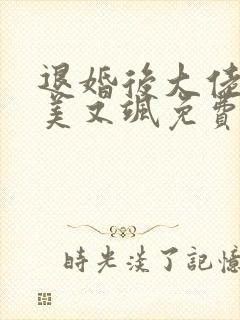 退婚後大佬
美又颯免費
時光淡了記憶